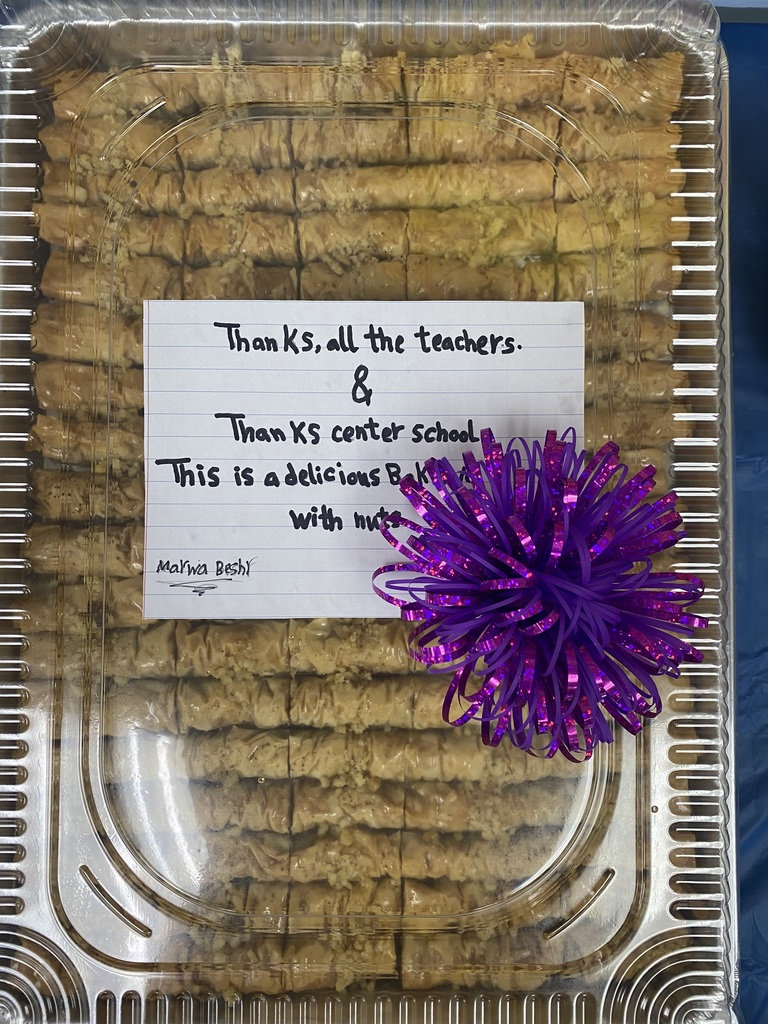 Thanks, all the teachers.
&
Thanks center school
This is a delicious
with nuts
Marwa Beshr